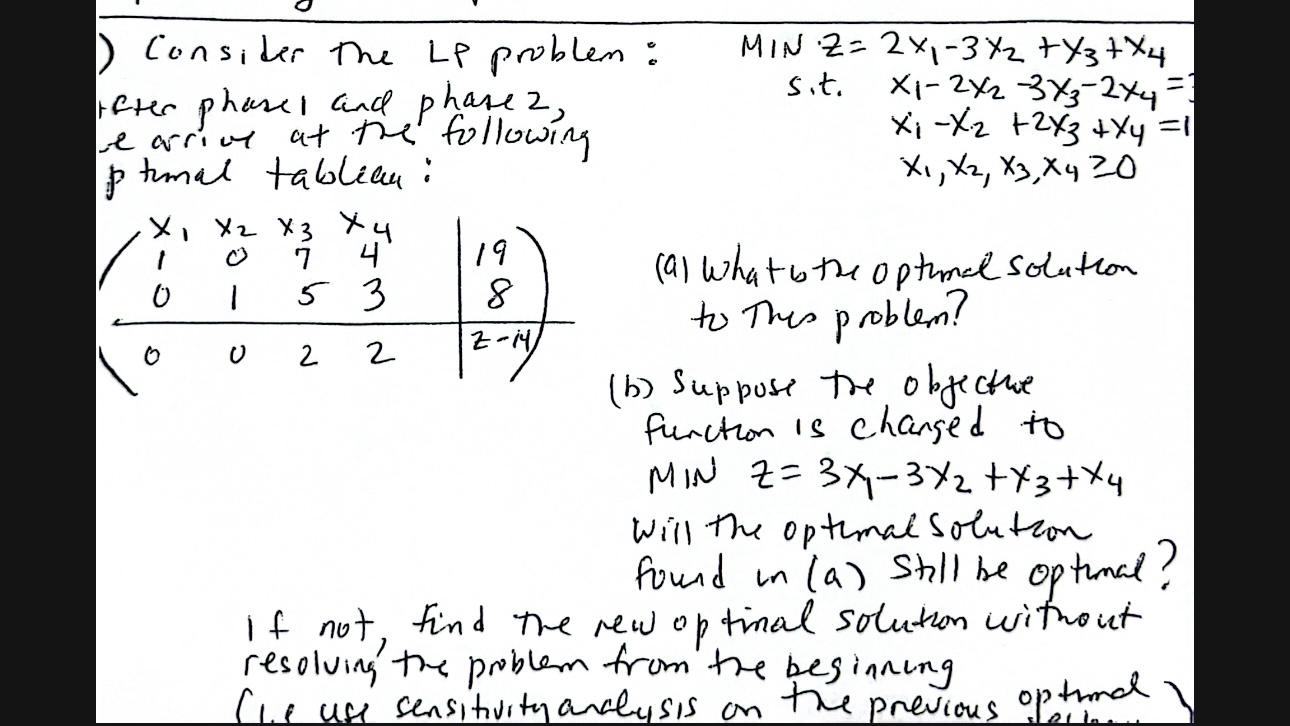 ) Consider the LP problem:
MIN Z = 2x₁-3x₂+x₃+x₄
s.t. x₁-2x₂-3x₃-2x₄=3
x₁-x₂+2x₃+x₄=1
x₁,x₂,x₃,x₄≥0
after phase1 and phase2,
e arrive at the following
ptimal tableau:
x₁ x₂ x₃ x₄
1 0 7 4 19
0 1 5 3 8
0 0 2 2 Z-14
(a) What is the optimal solution
to this problem?
(b) Suppose the objective
function is changed to
MIN Z= 3x₁-3x₂+x₃+x₄
Will the optimal solution
found in (a) Still be optimal?
If not, find the new optimal solution without
resolving the problem from the beginning
(i.e use sensitivity analysis on the previous optimal